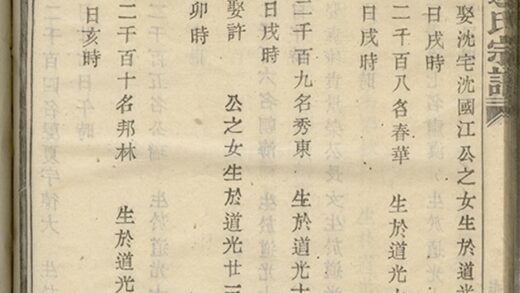 氏宗譜
娶沈宅沈國江公之女生於道光
日戌時
二千百八名春華 生於道光
日戌時
二千百九名秀東 生於道光十
日戌時
娶許 公之女生於道光廿三
卯時
二千百十名邦林 生於道光
日亥時